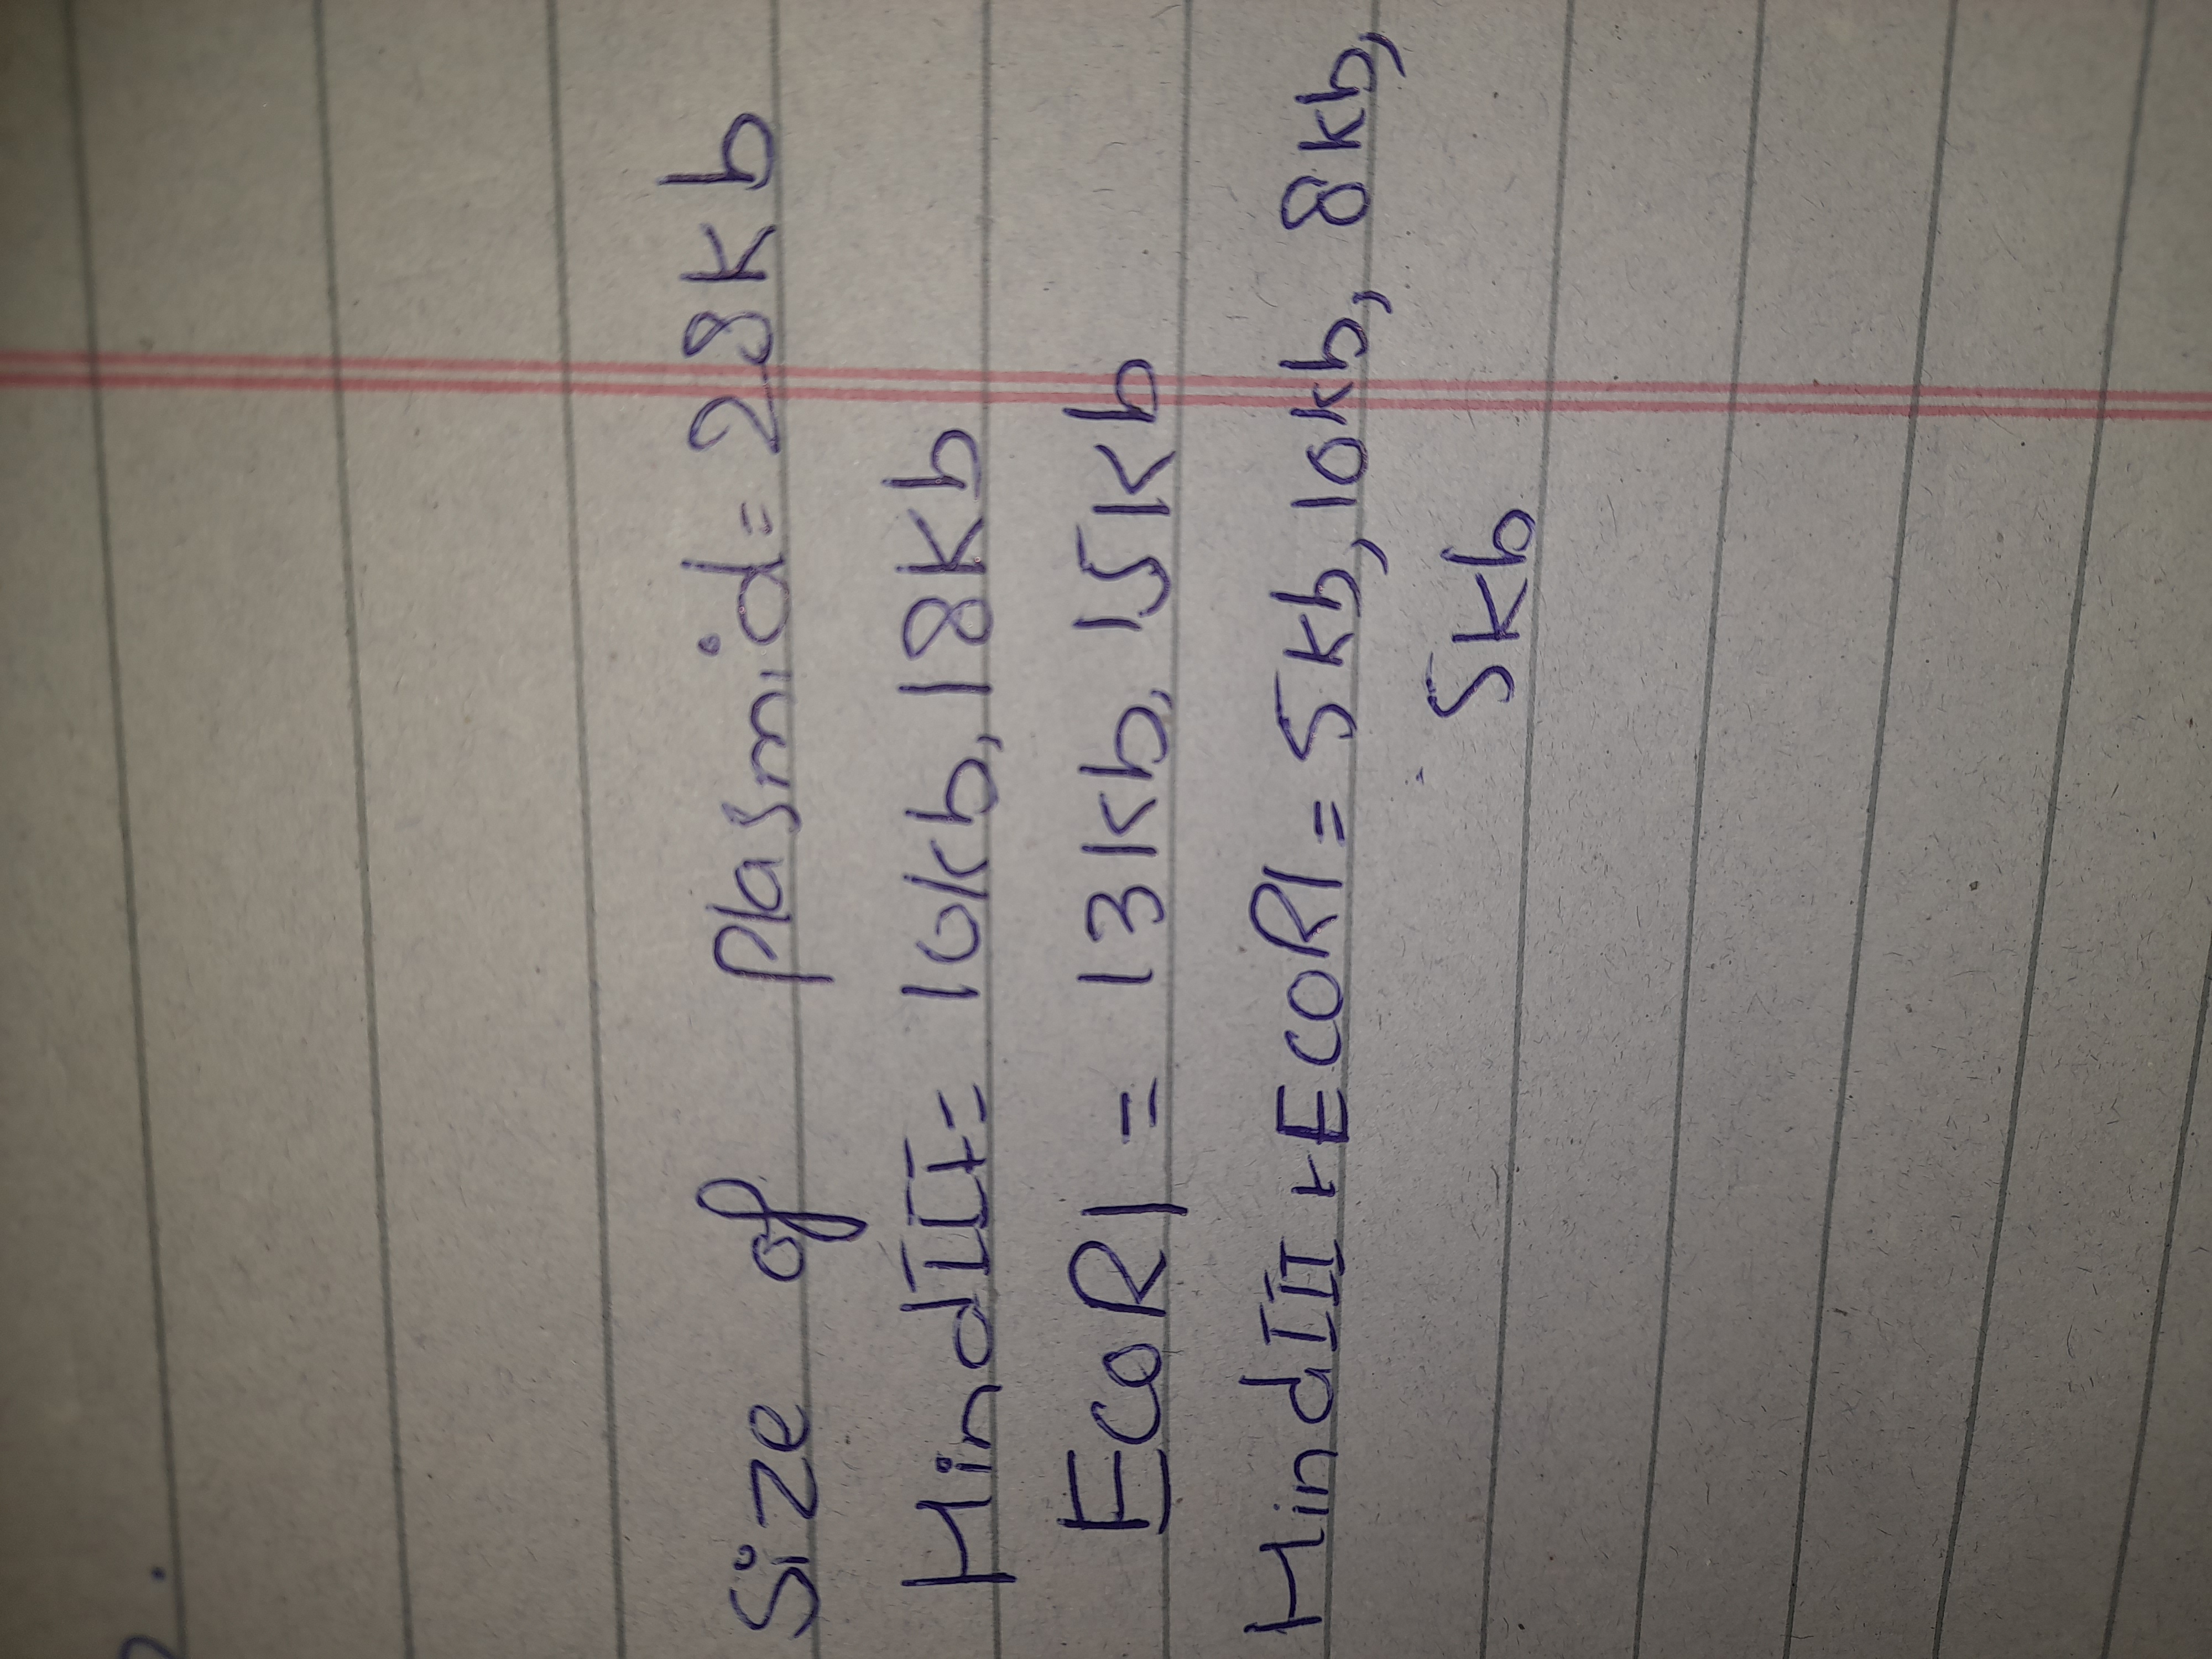 Size of Plasmid = 28Kb
HindIII = 10kb, 18Kb
EcoRI = 13Kb, 15Kb
HindIII + EcoRI = 5kb, 10kb, 8kb,
5kb